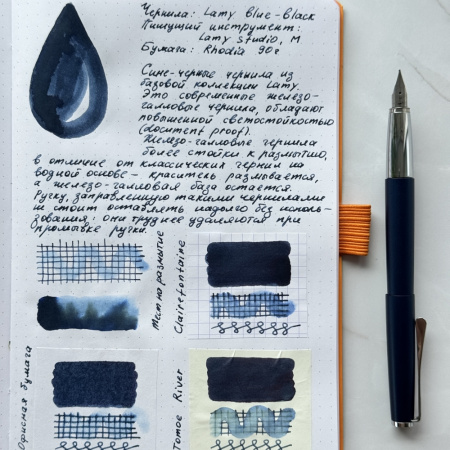 Чернила: Lamy Blue-Black
Пишущий инструмент:
Lamy Studio, M
Бумага: Rhodia 90г
Сине-чёрные чернила из
базовой коллекции Lamy.
Это современные железо-
галловые чернила, обладают
повышенной светостойкостью
(document proof).
Железо-галловые чернила
более стойки к размытию,
в отличие от классических чернил на
водной основе – краситель размывается,
а железо-галловая база остается.
Ручку, заправленную такими чернилами
не стоит оставлять надолго без исполь-
зования: они труднее удаляются при
промывке ручки.
тест на размытие
Clairefontaine
Офисная бумага
Tomoe River